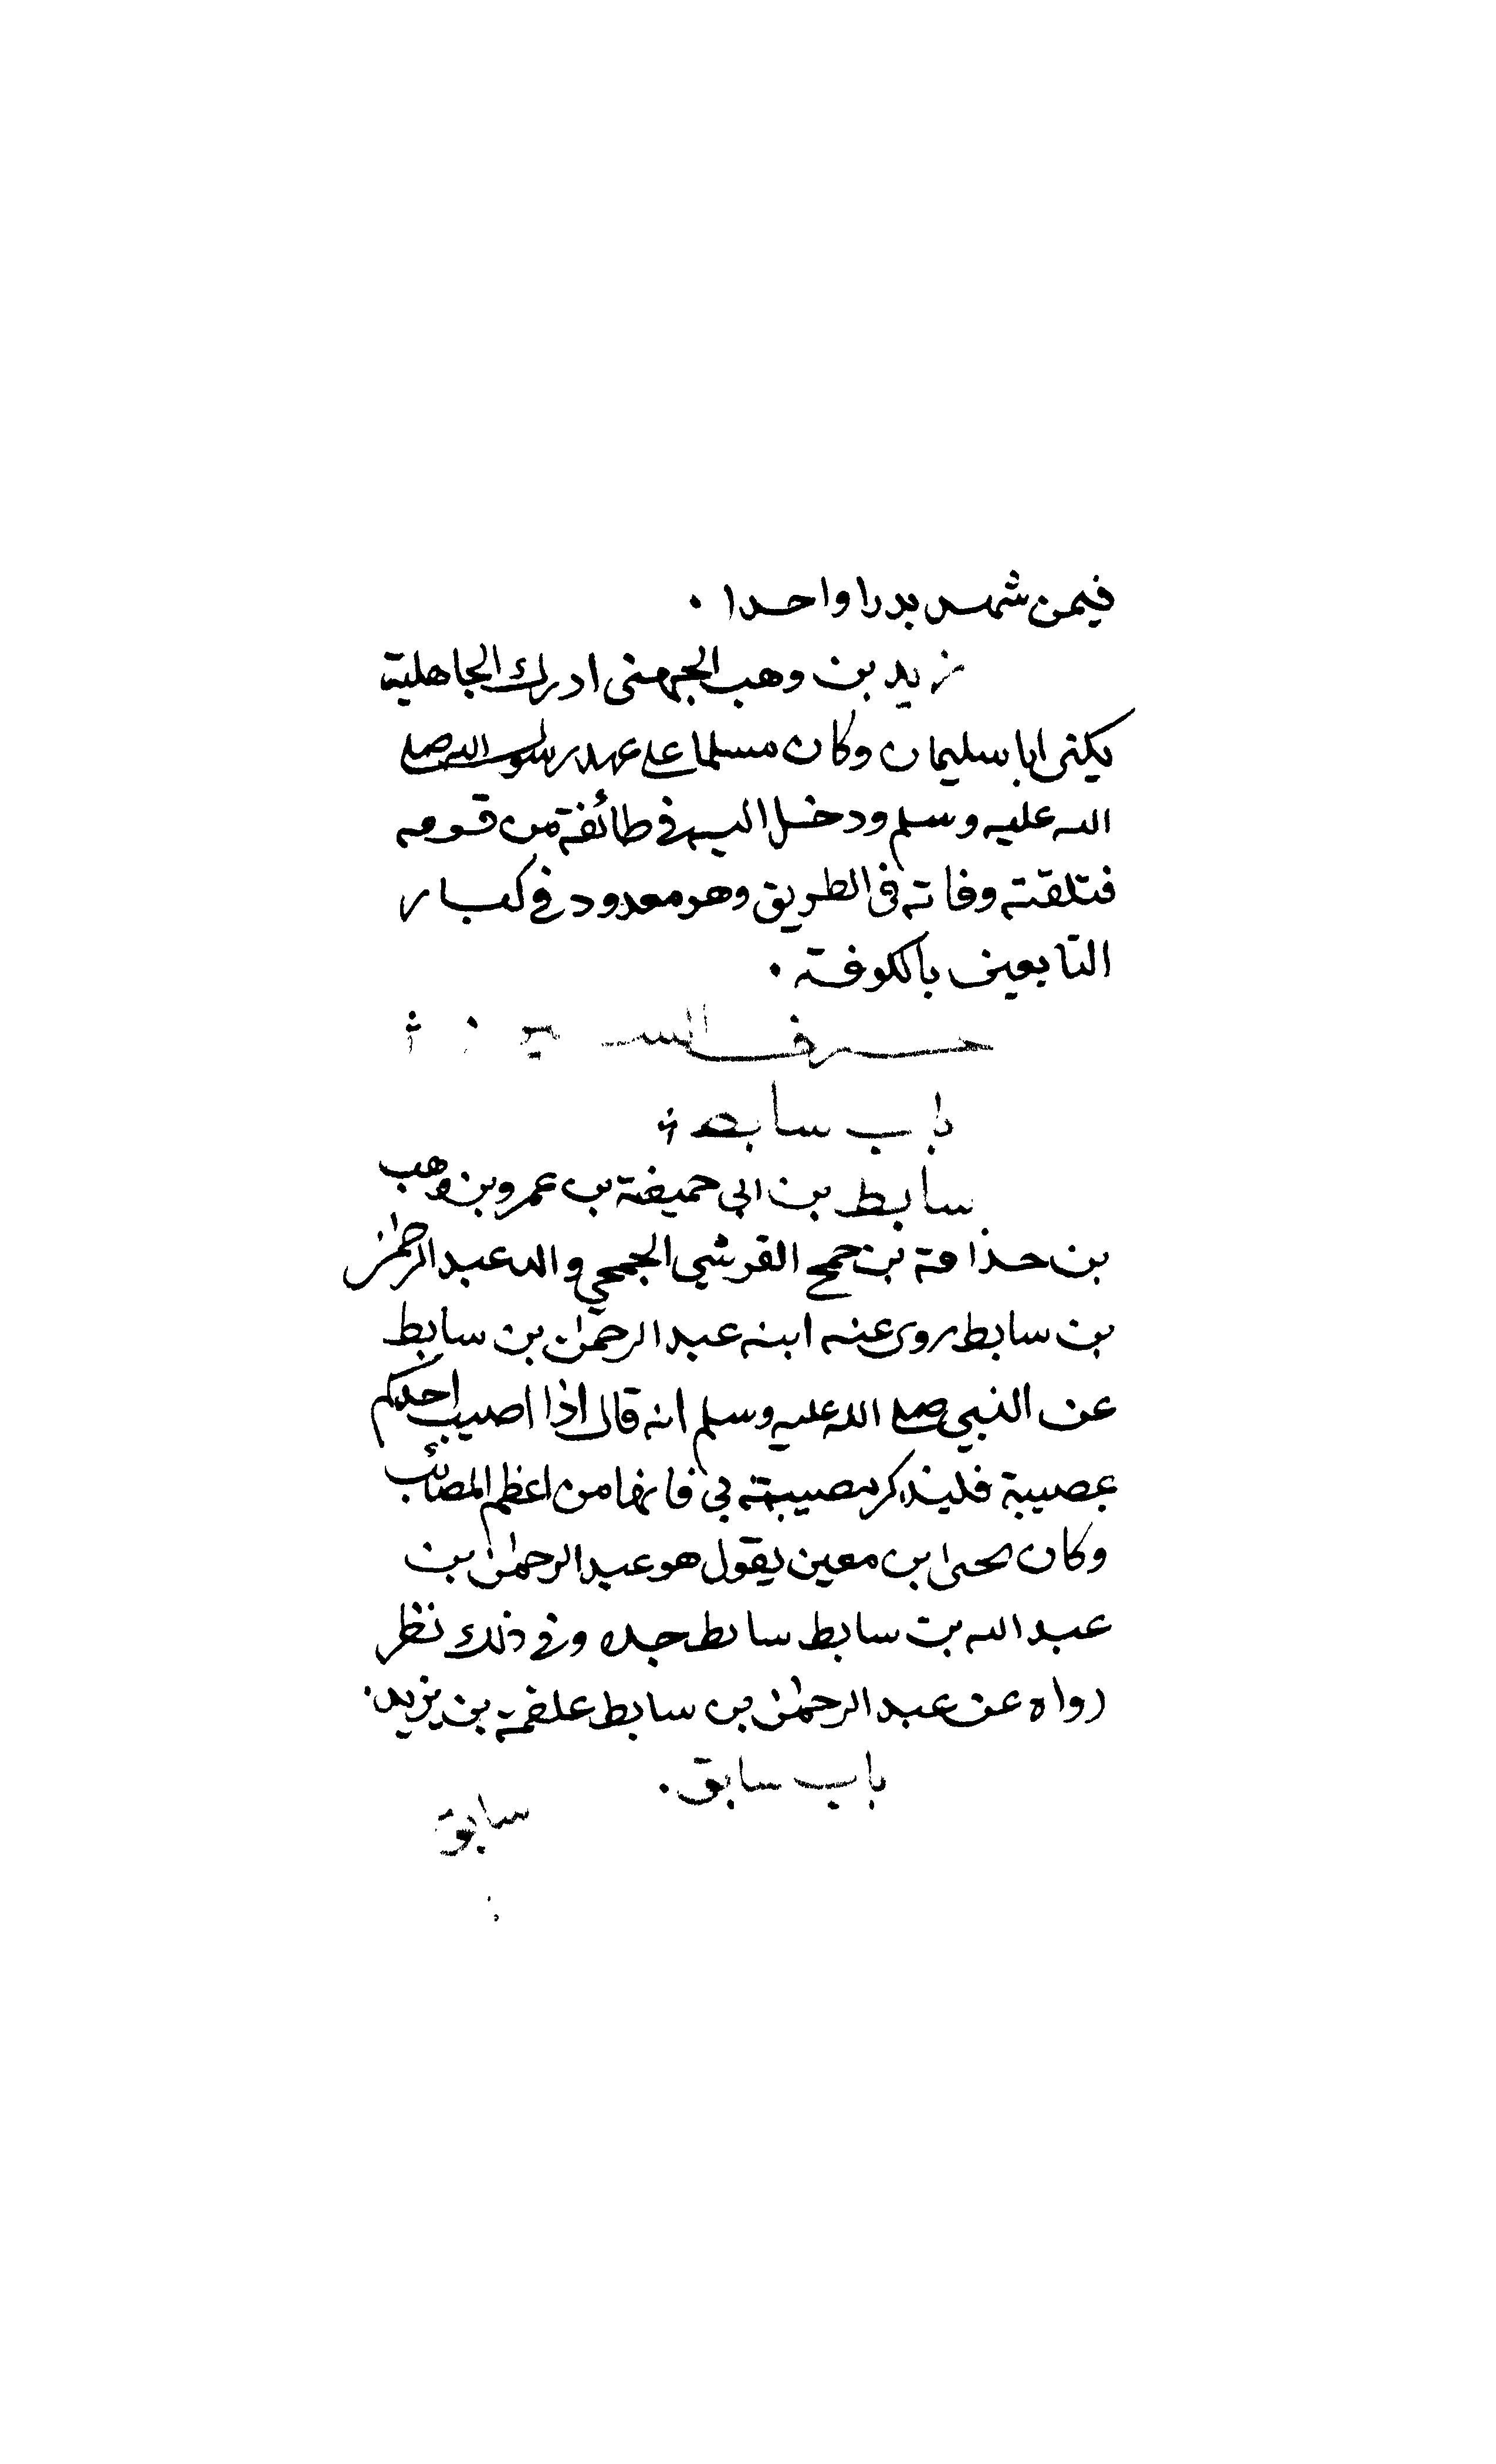 فيمن شهد بدرا واحدا .
زيد بن وهب الجهنى ادرك الجاهلية
يكنى ابا سليمان وكان مسلما على عهد رسول الله صلى
الله عليه وسلم ودخل اليه فى طائفة من قومه
فتلقته وفاته فى الطريق وهو معدود فى كبار
التابعين بالكوفة .
حرف السين
باب سابط
سابط بن ابى حميفة بن عمرو بن وهب
بن حذافة بن جمح القرشي الجمحي والد عبد الرحمن
بن سابط روى عنه ابنه عبد الرحمن بن سابط
عن النبي صلى الله عليه وسلم انه قال اذا اصيب احدكم
بمصيبة فليذكر مصيبته بي فانها من اعظم المصائب
وكان يحيى بن معين يقول هو عبد الرحمن بن
عبد الله بن سابط سابط جده وفى ذلك نظر
رواه عن عبد الرحمن بن سابط علقمة بن يزيد .
باب سابق .
سابق